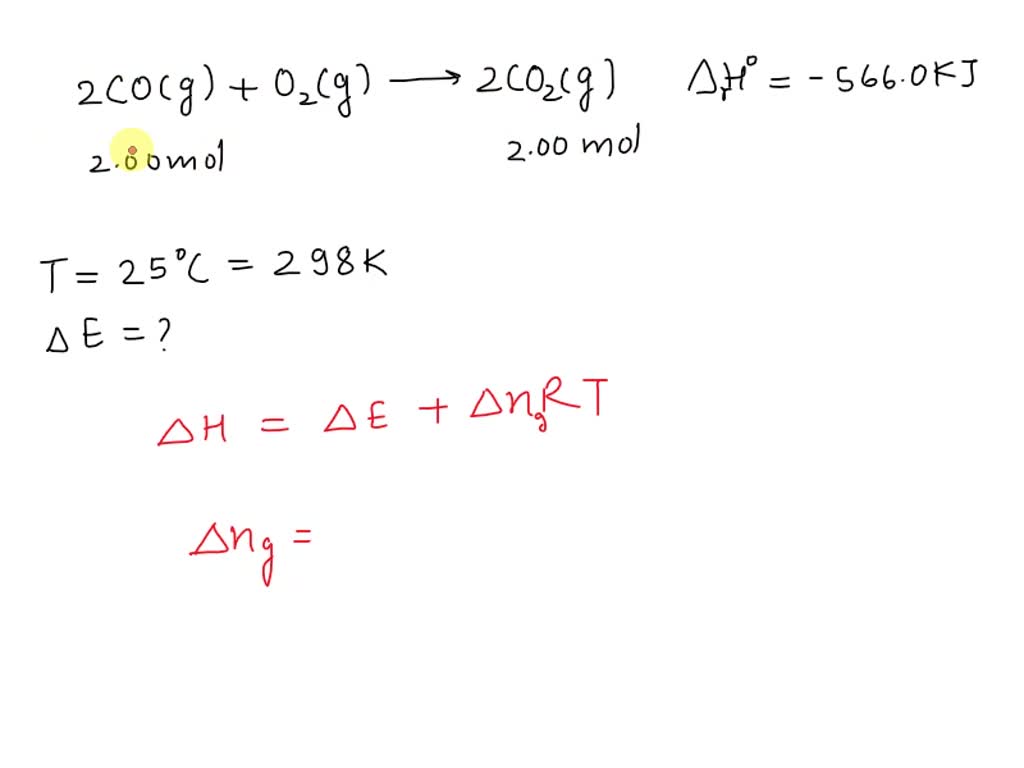 2CO(g) + O₂(g) ⟶ 2CO₂(g) ΔᵣH° = -566.0KJ
2.00mol 2.00 mol
T = 25°C = 298K
ΔE = ?
ΔH = ΔE + Δn_gRT
Δn_g =